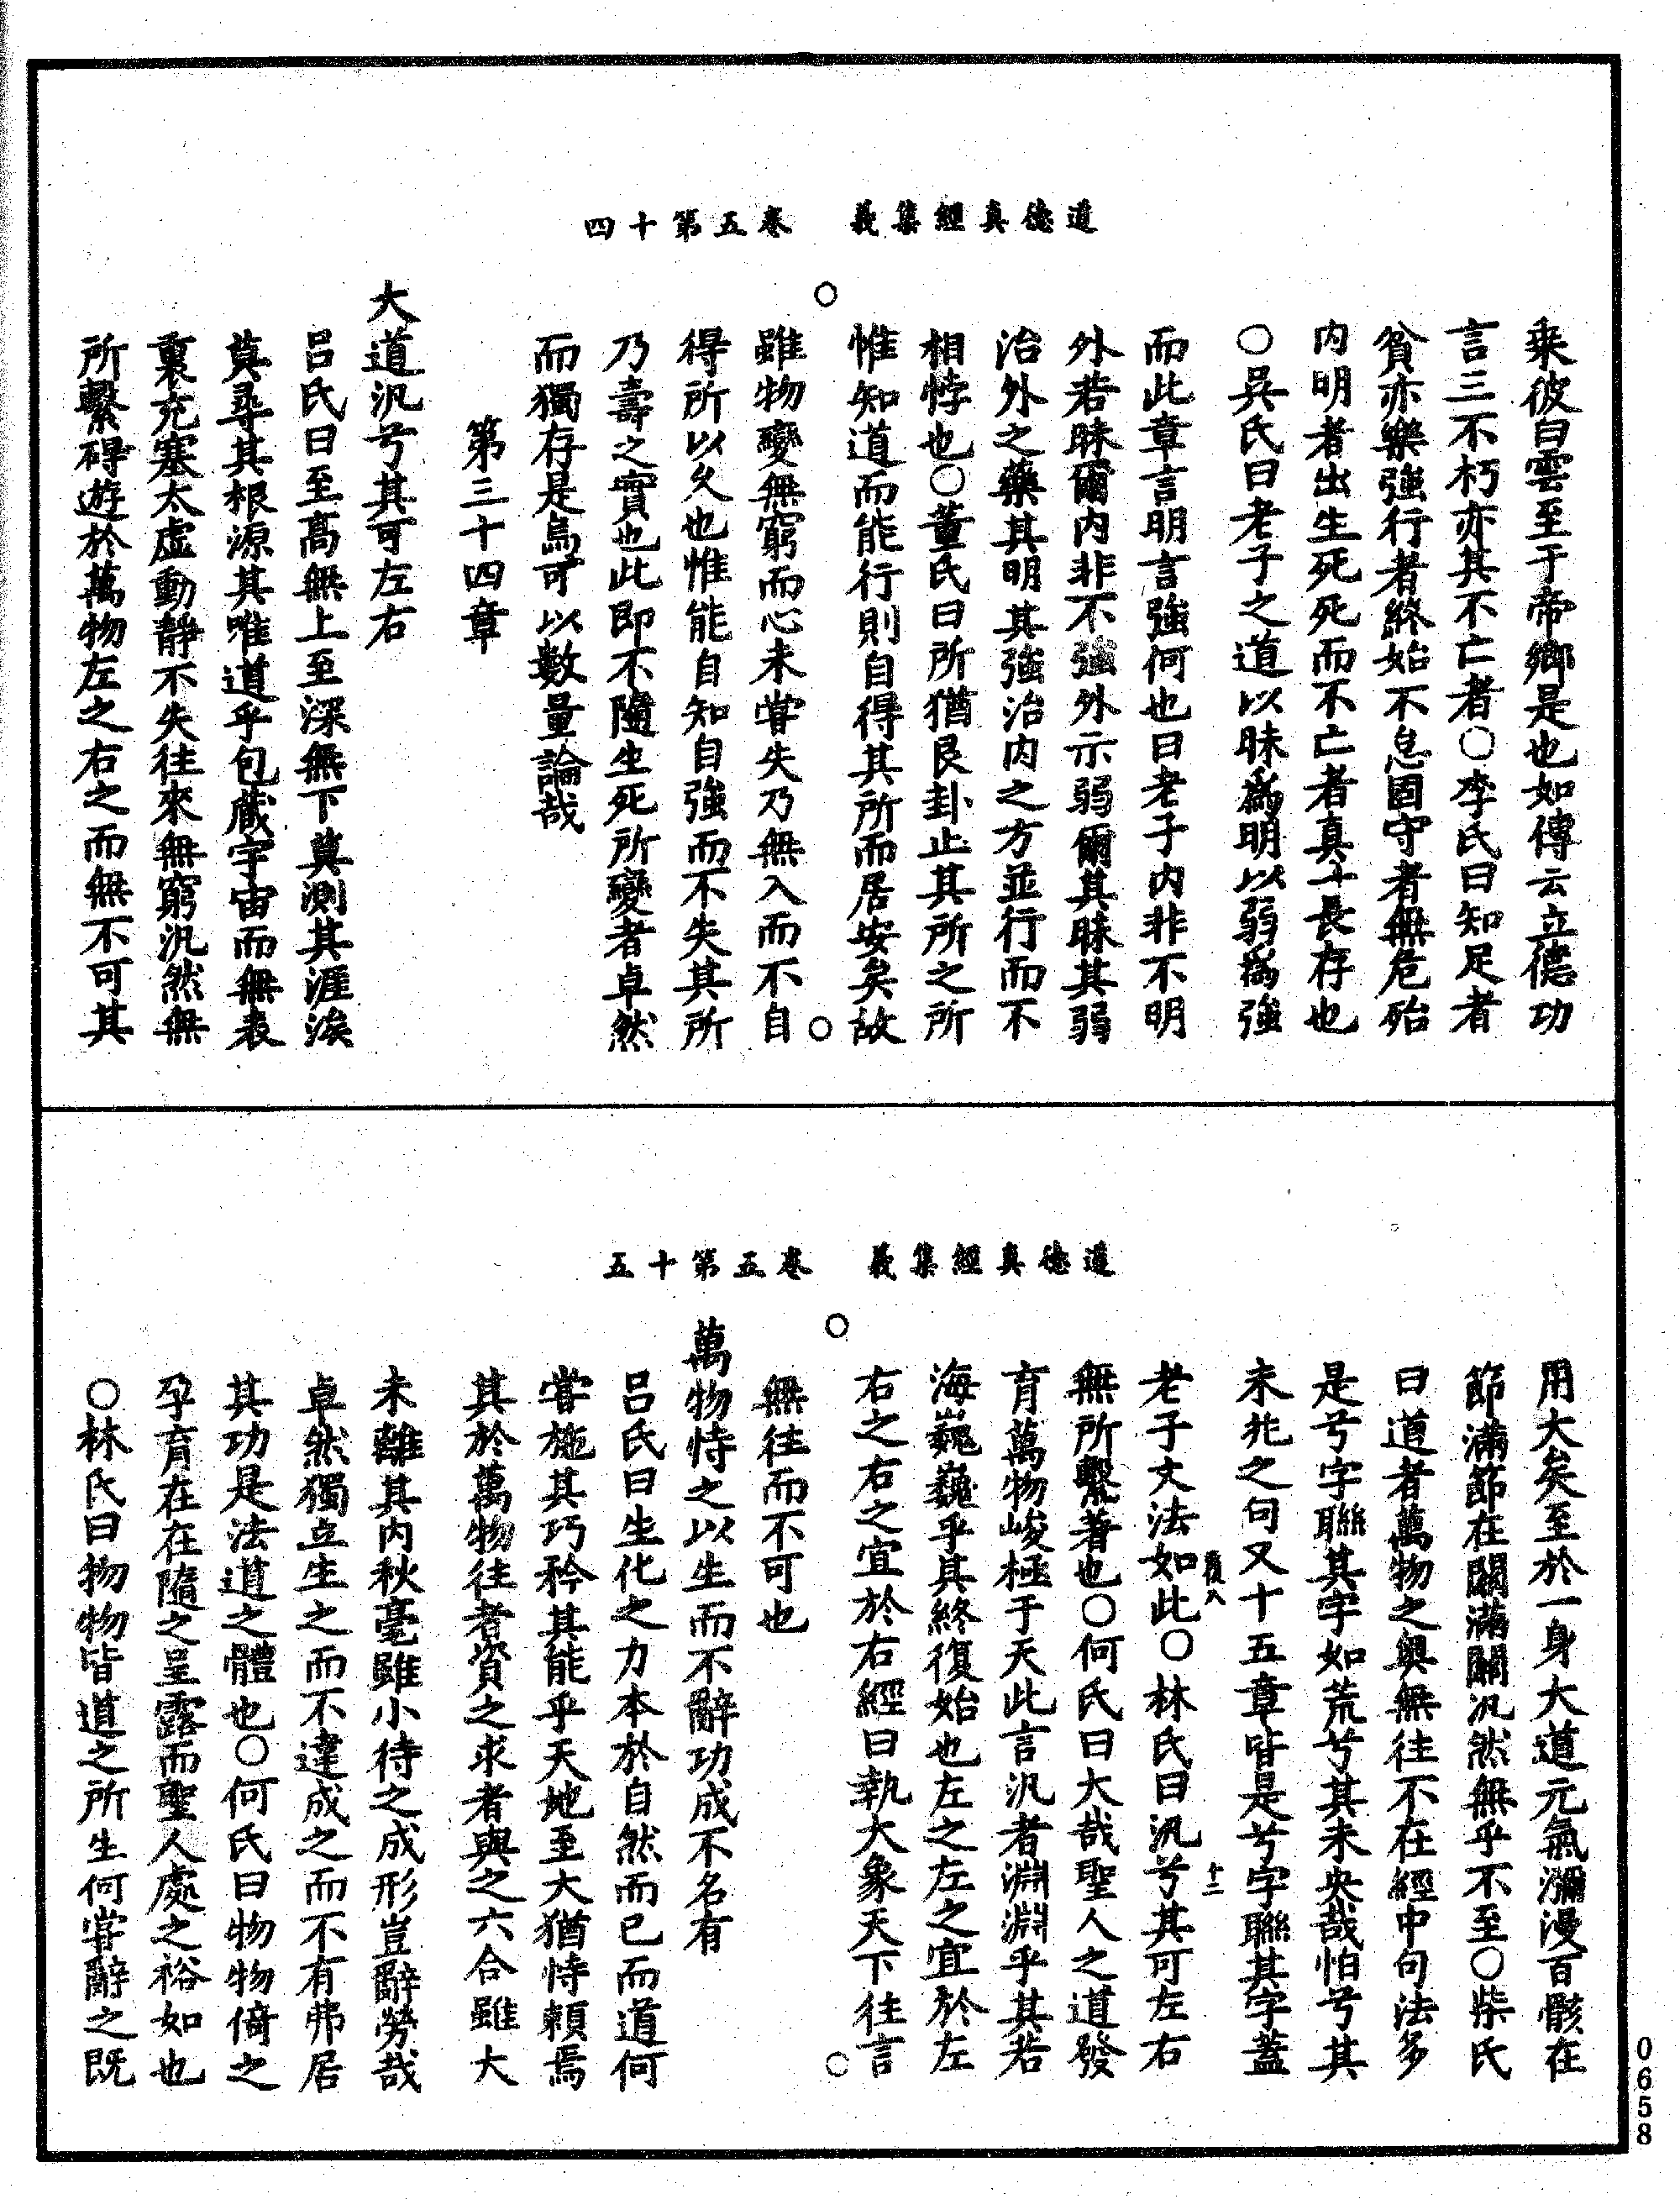 道德真經集義　卷五第十四
乗彼白雲至于帝鄉是也如傳云立德功
言三不朽亦其不亡者○李氏曰知足者
貧亦樂強行者終始不怠固守者無危殆
内明者出生死死而不亡者真千長存也
○吳氏曰老子之道以昧爲明以弱爲強
而此章言明言強何也曰老子内非不明
外若昧爾内非不強外示弱爾其昧其弱
治外之藥其明其強治内之方並行而不
相悖也○董氏曰所猶艮卦止其所之所
惟知道而能行則自得其所而居安矣故
雖物變無窮而心未甞失乃無入而不自
得所以久也惟能自知自強而不失其所
乃壽之實也此即不隨生死所變者卓然
而獨存是烏可以數量論哉
第三十四章
大道汎兮其可左右
吕氏曰至高無上至深無下莫測其涯涘
莫尋其根源其唯道乎包藏宇宙而無表
裏充塞太虛動靜不失往來無窮汎然無
所繫碍遊於萬物左之右之而無不可其
道德真經集義　卷五第十五
用大矣至於一身大道元氣瀰漫百骸在
節滿節在關滿關汎然無乎不至○柴氏
曰道者萬物之奧無往不在經中句法多
是兮字聯其字如荒兮其未央哉怕兮其
未兆之句又十五章皆是兮字聯其字蓋
老子文法如此○林氏曰汎兮其可左右
無所繫著也○何氏曰大哉聖人之道發
育萬物峻極于天此言汎者淵淵乎其若
海巍巍乎其終復始也左之左之宜於左
右之右之宜於右經曰執大象天下往言
無往而不可也
萬物恃之以生而不辭功成不名有
吕氏曰生化之力本於自然而已而道何
甞施其巧矜其能乎天地至大猶恃賴焉
其於萬物往者資之求者與之六合雖大
未離其内秋毫雖小待之成形豈辭勞哉
卓然獨立生之而不違成之而不有弗居
其功是法道之體也○何氏曰物物倚之
孕育在在隨之呈露而聖人處之裕如也
○林氏曰物物皆道之所生何甞辭之既
0658